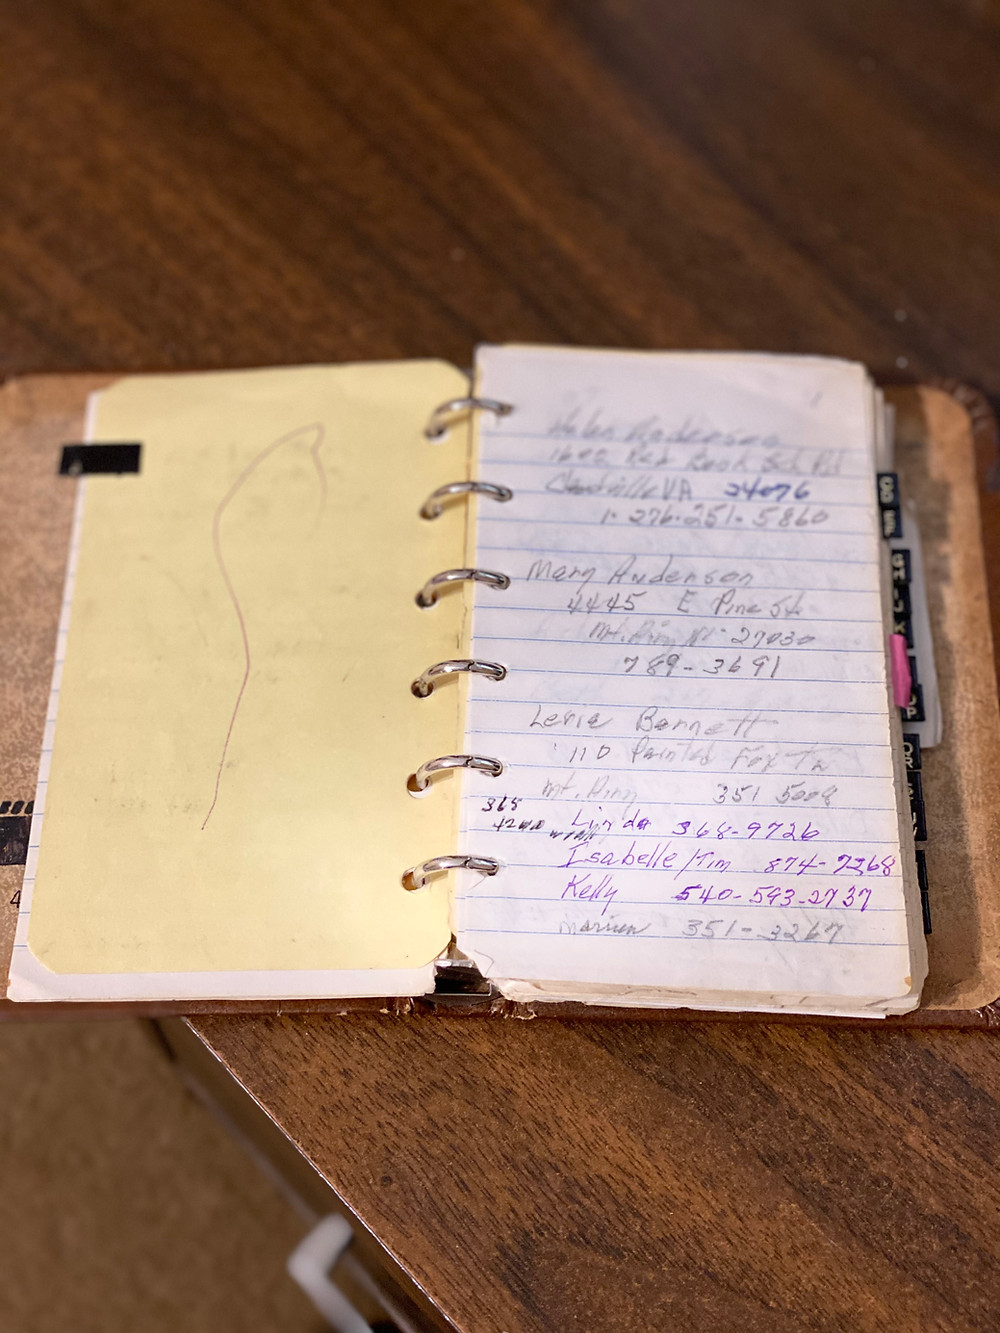 Helen Anderson
1600 Red Bank Sch Rd
Claudville VA 24076
1-276-251-5860
Mary Anderson
4445 E Pine St.
Mt. Airy NC 27030
789-3691
Levie Bennett
110 Painted Fox Tr
Mt. Airy 351 5008
368
Linda 368-9726
Isabelle/Tim 874-7268
Kelly 540-593-2737
Marion 351-3267
4